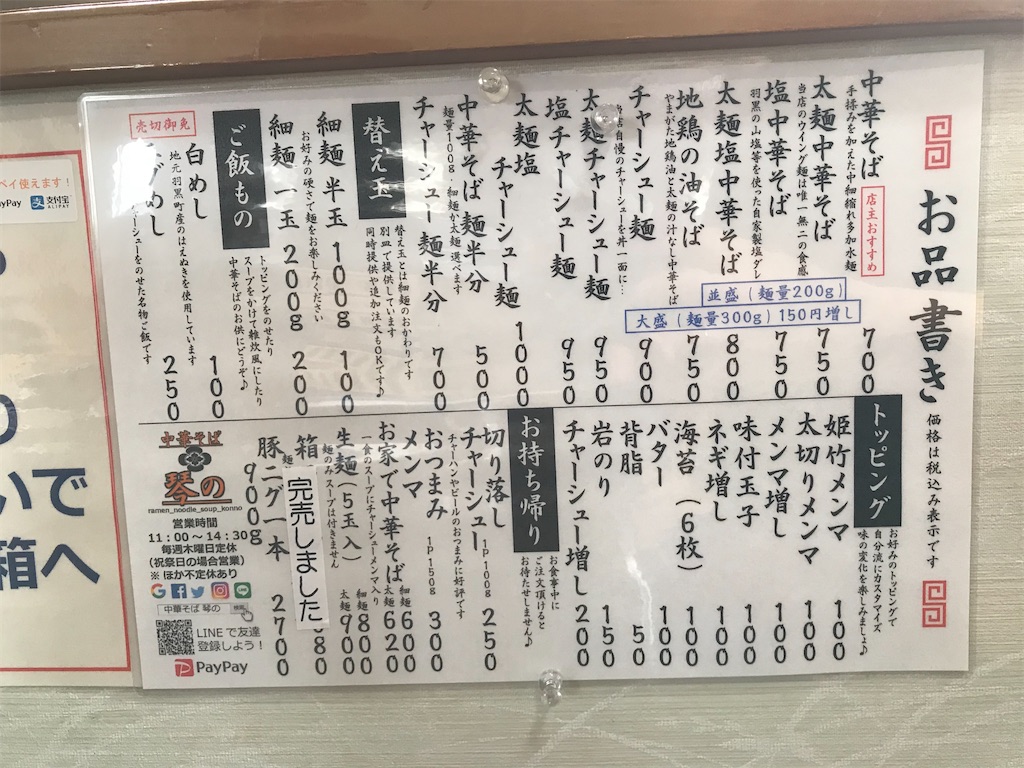 お品書き
価格は税込み表示です
中華そば
店主おすすめ
700
手揉みを加えた中細縮れ多加水麺
太麺中華そば
750
当店のウイング麺は唯一無二の食感
塩中華そば
750
羽黒の山塩等を使った自家製塩ダレ
太麺塩中華そば
800
地鶏の油そば
750
やまがた地鶏油と太麺の汁なし中華そば
並盛(麺量200g)
大盛(麺量300g)150円増し
チャーシュー麺
900
自慢のチャーシューを丼一面に…
太麺チャーシュー麺
950
塩チャーシュー麺
950
太麺塩チャーシュー麺
1000
中華そば麺半分
500
麺量100g・細麺か太麺選べます
チャーシュー麺半分
700
替え玉
替え玉とは細麺のおかわりです
別皿で提供しています
同時提供や追加注文もOKです♪
細麺 半玉 100g
100
お好みの硬さで麺をお楽しみください
細麺 一玉 200g
200
ご飯もの
トッピングをのせたり
スープをかけて雑炊風にしたり
中華そばのお供にどうぞ♪
白めし
100
地元羽黒町産のはえぬきを使用しています
売切御免
めし
250
チャーシューをのせた名物ご飯です
トッピング
お好みのトッピングで
自分流にカスタマイズ
味の変化を楽しみましょ♪
姫竹メンマ
100
太切りメンマ
100
メンマ増し
100
味付玉子
100
ネギ増し
100
海苔(6枚)
100
バター
100
背脂
50
岩のり
150
チャーシュー増し
200
お持ち帰り
お食事中に
ご注文頂けると
お待たせしません♪
切り落しチャーシュー
1P100g
250
チャーハンやビールのおつまみに好評です
おつまみメンマ
1P150g
300
お家で中華そば
細麺600
太麺620
一食のスープにチャーシューメンマ入り
生麺(5玉入)
細麺800
太麺900
麺のみスープは付きません
箱
完売しました
80
豚ニグ一本
900g
2700
中華そば
琴の
ramen_noodle_soup_konno
営業時間
11:00～14:30
毎週木曜日定休
(祝祭日の場合営業)
※ほか不定休あり
中華そば 琴の
検索
LINEで友達
登録しよう!
PayPay
ペイ使えます!
ayPay
支付宝
ALIPAY
いで
箱へ